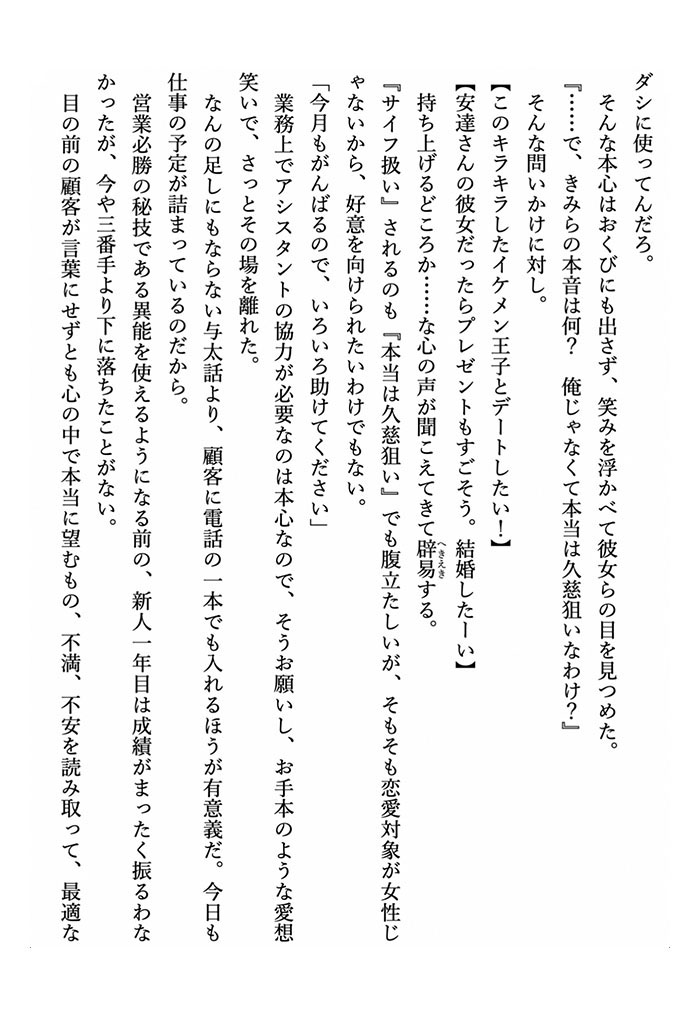 ダシに使ってんだろ。
　そんな本心はおくびにも出さず、笑みを浮かべて彼女らの目を見つめた。
『……で、きみらの本音は何？　俺じゃなくて本当は久慈狙いなわけ？』
　そんな問いかけに対し。
【このキラキラしたイケメン王子とデートしたい！】
【安達さんの彼女だったらプレゼントもすごそう。結婚したーい】
　持ち上げるどころか……な心の声が聞こえてきて辟易へきえきする。
『サイフ扱い』されるのも『本当は久慈狙い』でも腹立たしいが、そもそも恋愛対象が女性じ
ゃないから、好意を向けられたいわけでもない。
「今月もがんばるので、いろいろ助けてください」
　業務上でアシスタントの協力が必要なのは本心なので、そうお願いし、お手本のような愛想
笑いで、さっとその場を離れた。
　なんの足しにもならない与太話より、顧客に電話の一本でも入れるほうが有意義だ。今日も
仕事の予定が詰まっているのだから。
　営業必勝の秘技である異能を使えるようになる前の、新人一年目は成績がまったく振るわな
かったが、今や三番手より下に落ちたことがない。
　目の前の顧客が言葉にせずとも心の中で本当に望むもの、不満、不安を読み取って、最適な